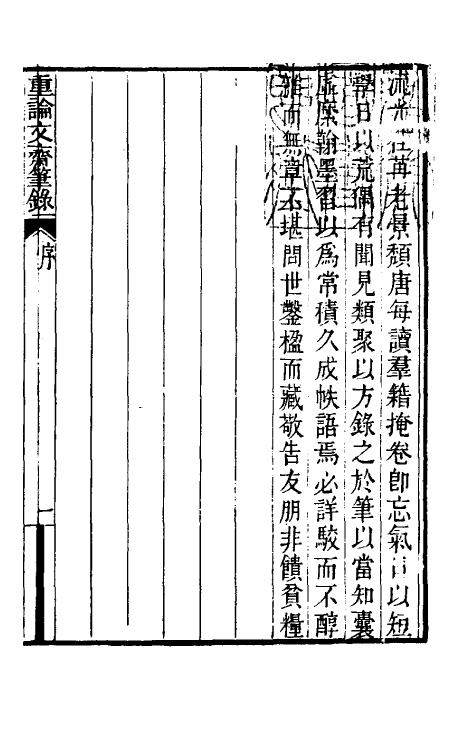 流光荏苒老景頹唐每讀羣籍掩卷卽忘氣日以短
學日以荒偶有聞見類聚以方錄之於筆以當知囊
虛糜翰墨習以爲常積久成帙語焉必詳駁而不醇
雜而無章不堪問世鑿楹而藏敬告友朋非饋貧糧
重論文齋筆錄 序 一